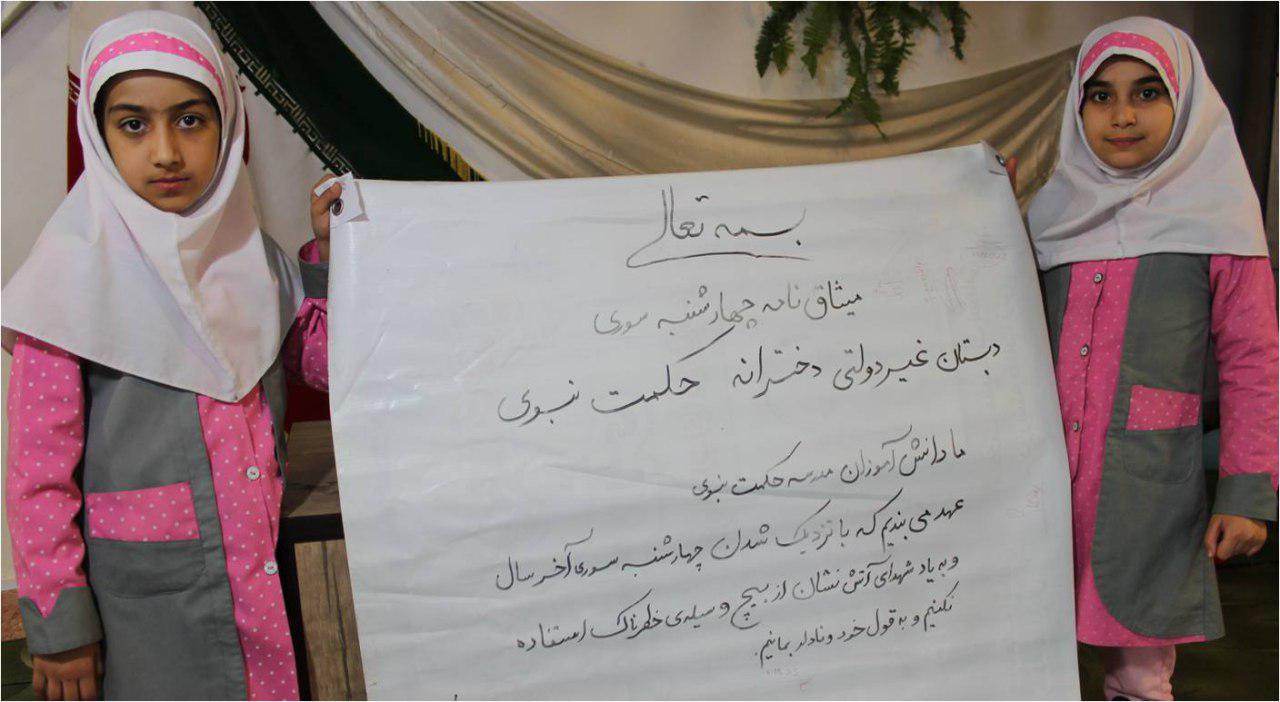 بسمه تعالی
میثاق نامه چهارشنبه سوری
دبستان غیردولتی دخترانه حکمت نبوی
ما دانش آموزان مدرسه حکمت نبوی
عهد می بندیم که با نزدیک شدن چهارشنبه سوری آخر سال
و به یاد شهدای آتش نشان از هیچ وسیله ی خطرناک استفاده
نکنیم و به قول خود وفادار بمانیم.